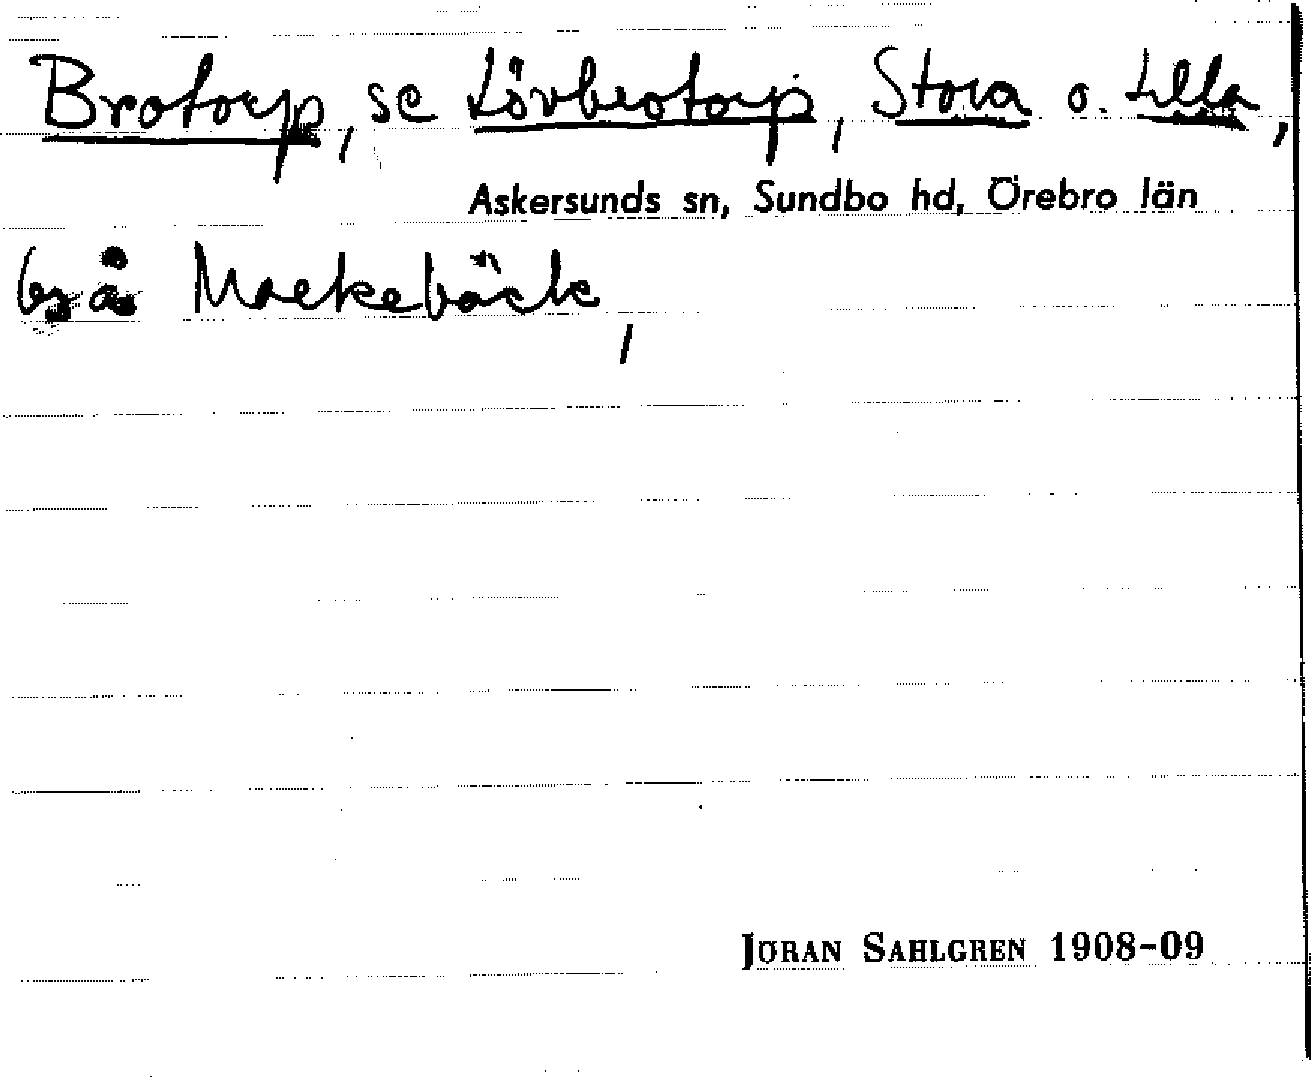 Brotorp, se Lövbrotorp, Stora o. Lilla,
Askersunds sn, Sundbo hd, Örebro län
by å Markebäck,
JÖRAN SAHLGREN 1908-09